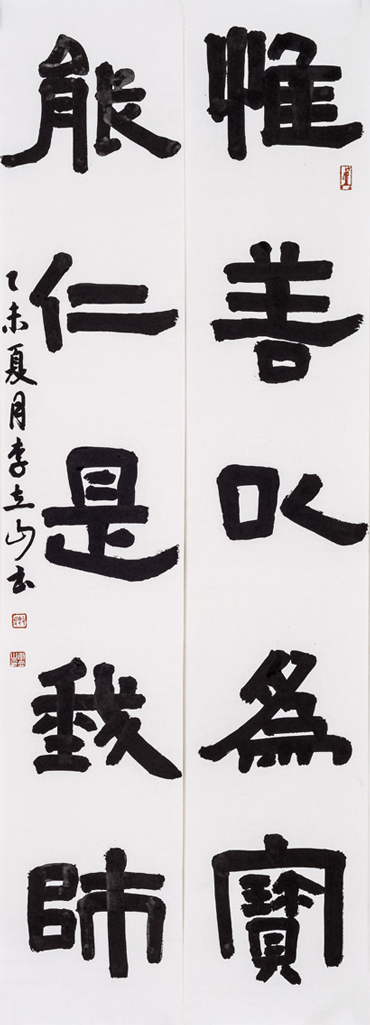 惟善以為寶
能仁是我師
乙未夏月李立山書